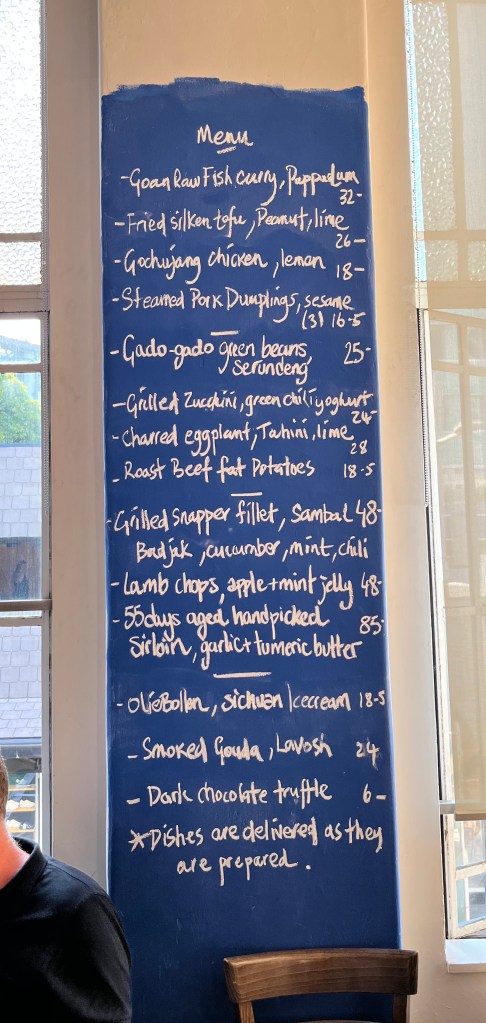 Menu
- Goan Raw Fish curry, Pappadum
32-
- Fried silken tofu, Peanut, lime
26-
- Gochujang chicken, lemon 18-
- Steamed Pork Dumplings, sesame
(3) 16-5
- Gado-gado green beans, 25-
serundeng
- Grilled Zucchini, green chili yoghurt
24-
- Charred eggplant, Tahini, lime
28
- Roast Beef fat Potatoes 18-5
- Grilled snapper fillet, Sambal 48-
Badjak, cucumber, mint, chili
- Lamb chops, apple + mint jelly 48-
- 55 days aged, handpicked 85-
Sirloin, garlic + tumeric butter
- OlieBollen, sichuan Icecream 18-5
- Smoked Gouda, Lavosh 24
- Dark chocolate truffle 6-
*Dishes are delivered as they
are prepared.